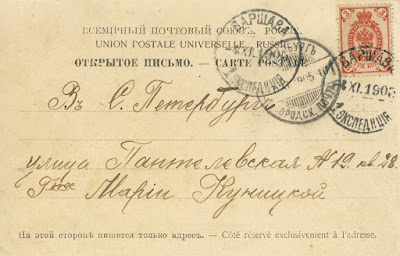 ВСЕМІРНЫЙ ПОЧТОВЫЙ СОЮЗЪ. РОССІЯ
UNION POSTALE UNIVERSELLE. RUSSIE
ОТКРЫТОЕ ПИСЬМО. — CARTE POSTALE
ВАРШАВА
XI.1905
1 ЭКСПЕДИЦІЯ
БУРГЪ
ГОРОДСК. ПОЧТА
3
ВАРШАВА
XI.1905
1 ЭКСПЕДИЦІЯ
Въ С. Петербургъ
улица Пантелѣвская № 12. кв. 28.
Маріи Куницкой
На этой сторонѣ пишется только адресъ. — Côté réservé exclusivement à l'adresse.